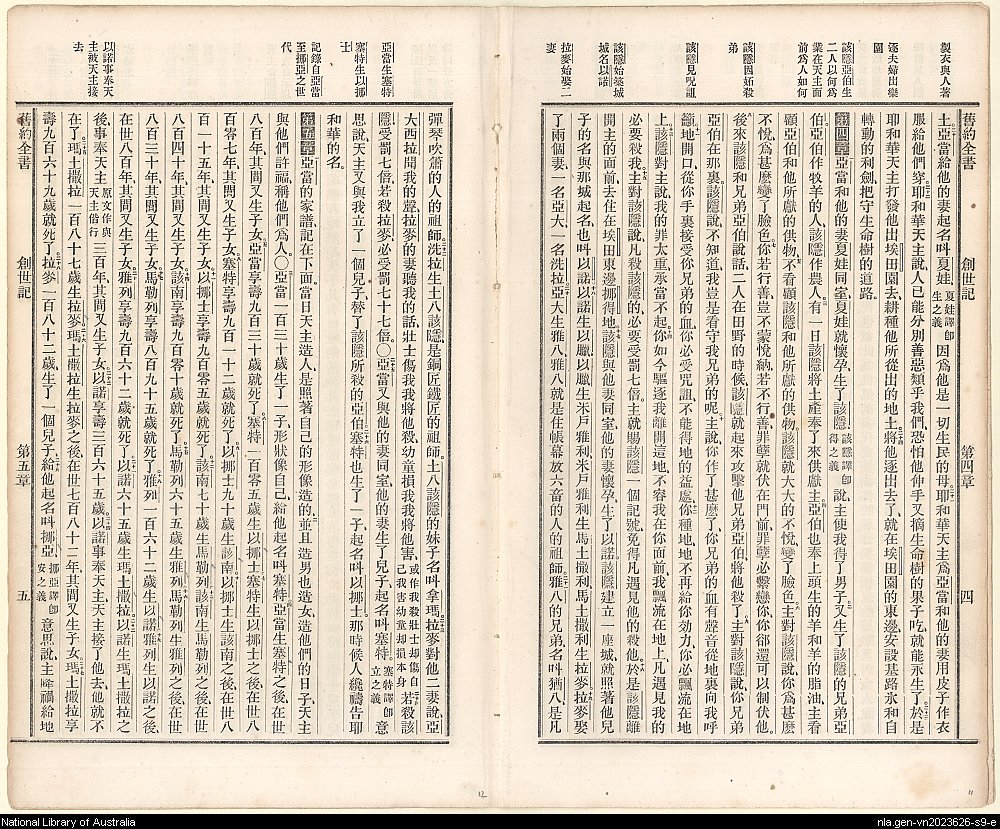 製衣與人著
逐夫婦出樂
園
該隱亞伯生
二人以何為
業在天主面
前為人如何
該隱因妬殺
弟
該隱見呪詛
該隱始築城
城名以諾
拉麥始娶二
妻
舊約全書 創世記 第四章 四
土亞當給他的妻起名呌夏娃夏娃譯卽生之義因為他是一切生民的母耶和華天主為亞當和他的妻用皮子作衣
服給他們穿耶和華天主說人已能分別善惡類乎我們恐怕他伸手又摘生命樹的果子吃就能永生了於是
耶和華天主打發他出埃田園去耕種他所從出的地土將他逐出去了就在埃田園的東邊安設基路氷和自
轉動的利劍把守生命樹的道路
第四章亞當和他的妻夏娃同室夏娃就懷孕生了該隱該隱譯卽得之義說主使我得了男子又生了該隱的兄弟亞
伯亞伯作牧羊的人該隱作農人有一日該隱將土產奉了來供獻主亞伯也奉上頭生的羊和羊的脂油主看
顧亞伯和他所獻的供物不看顧該隱和他所獻的供物該隱就大大的不悅變了臉色主對該隱說你為甚麼
不悅為甚麼變了臉色你若行善豈不蒙悅納若不行善罪孽就伏在門前罪孽必繫戀你你卻還可以制伏他
後來該隱和兄弟亞伯說話二人在田野的時候該隱就起來攻擊他兄弟亞伯將他殺了主對該隱說你兄弟
亞伯在那裏該隱說不知道我豈是看守我兄弟的呢主說你作了甚麼了你兄弟的血有聲音從地裏向我呼
籲地開口從你手裏接受你兄弟的血你必受咒詛不能得地的益處你種地地不再給你効力你必飄流在地
上該隱對主說我的罪太重承當不起你如今驅逐我離開這地不容我在你面前我飄流在地上凡遇見我的
必要殺我主對該隱說凡殺該隱的必要受罰七倍主就賜該隱一個記號免得凡遇見他的殺他於是該隱離
開主的面前去住在埃田東邊挪得地該隱與他妻同室他的妻懷孕生了以諾該隱建立一座城就照著他兒
子的名與那城起名也呌以諾以諾生以臘以臘生米戶雅利米戶雅利生馬土撒利馬土撒利生拉麥拉麥娶
了兩個妻一名亞大一名洗拉亞大生雅八雅八就是住帳幕放六畜的人的祖師雅八的兄弟名呌猶八是凡
亞當生塞特
塞特生以挪
士
記錄自亞當
至挪亞之世
代
以諾事奉天
主被天主接
去
彈琴吹簫的人的祖師洗拉生土八該隱是銅匠鐵匠的祖師土八該隱的妹子名呌拿瑪拉麥對他二妻說亞
大西拉聞我的聲拉麥的妻聽我的話壯士傷我我將他殺幼童損我我將他害或作我殺壯士却傷自己我害幼童却損本身若殺該
隱受罰七倍若殺拉麥必受罰七十七倍〇亞當又與他的妻同室他的妻生了兒子起名呌塞特塞特譯卽立之義意
思說天主又與我立了一個兒子替了該隱所殺的亞伯塞特也生了一子起名呌以挪士那時候人纔禱告耶
和華的名
第五章亞當的家譜記在下面當日天主造人是照著自己的形像造的並且造男也造女造他們的日子天主
與他們許福稱他們為人〇亞當一百三十歲生了一子形狀像自己給他起名呌塞特亞當生塞特之後在世
八百年其間又生子女亞當享壽九百三十歲就死了塞特一百零五歲生以挪士塞特生以挪士之後在世八
百零七年其間又生子女塞特享壽九百一十二歲就死了以挪士九十歲生該南以挪士生該南之後在世八
百一十五年其間又生子女以挪士享壽九百零五歲就死了該南七十歲生馬勒列該南生馬勒列之後在世
八百四十年其間又生子女該南享壽九百零十歲就死了馬勒列六十五歲生雅列馬勒列生雅列之後在世
八百三十年其間又生子女馬勒列享壽八百九十五歲就死了雅列一百六十二歲生以諾雅列生以諾之後
在世八百年其間又生子女雅列享壽九百六十二歲就死了以諾六十五歲生瑪土撒拉以諾生瑪土撒拉之
後事奉天主原文作與天主偕行三百年其間又生子女以諾享壽三百六十五歲以諾事奉天主天主接了他去他就不
在了瑪土撒拉一百八十七歲生拉麥瑪土撒拉生拉麥之後在世七百八十二年其間又生子女瑪土撒拉享
壽九百六十九歲就死了拉麥一百八十二歲生了一個兒子給他起名呌挪亞挪亞譯卽安之義意思說主降禍給地
舊約全書 創世記 第五章 五
12
11
National Library of Australia
nla.gen-vn2023626-s9-e